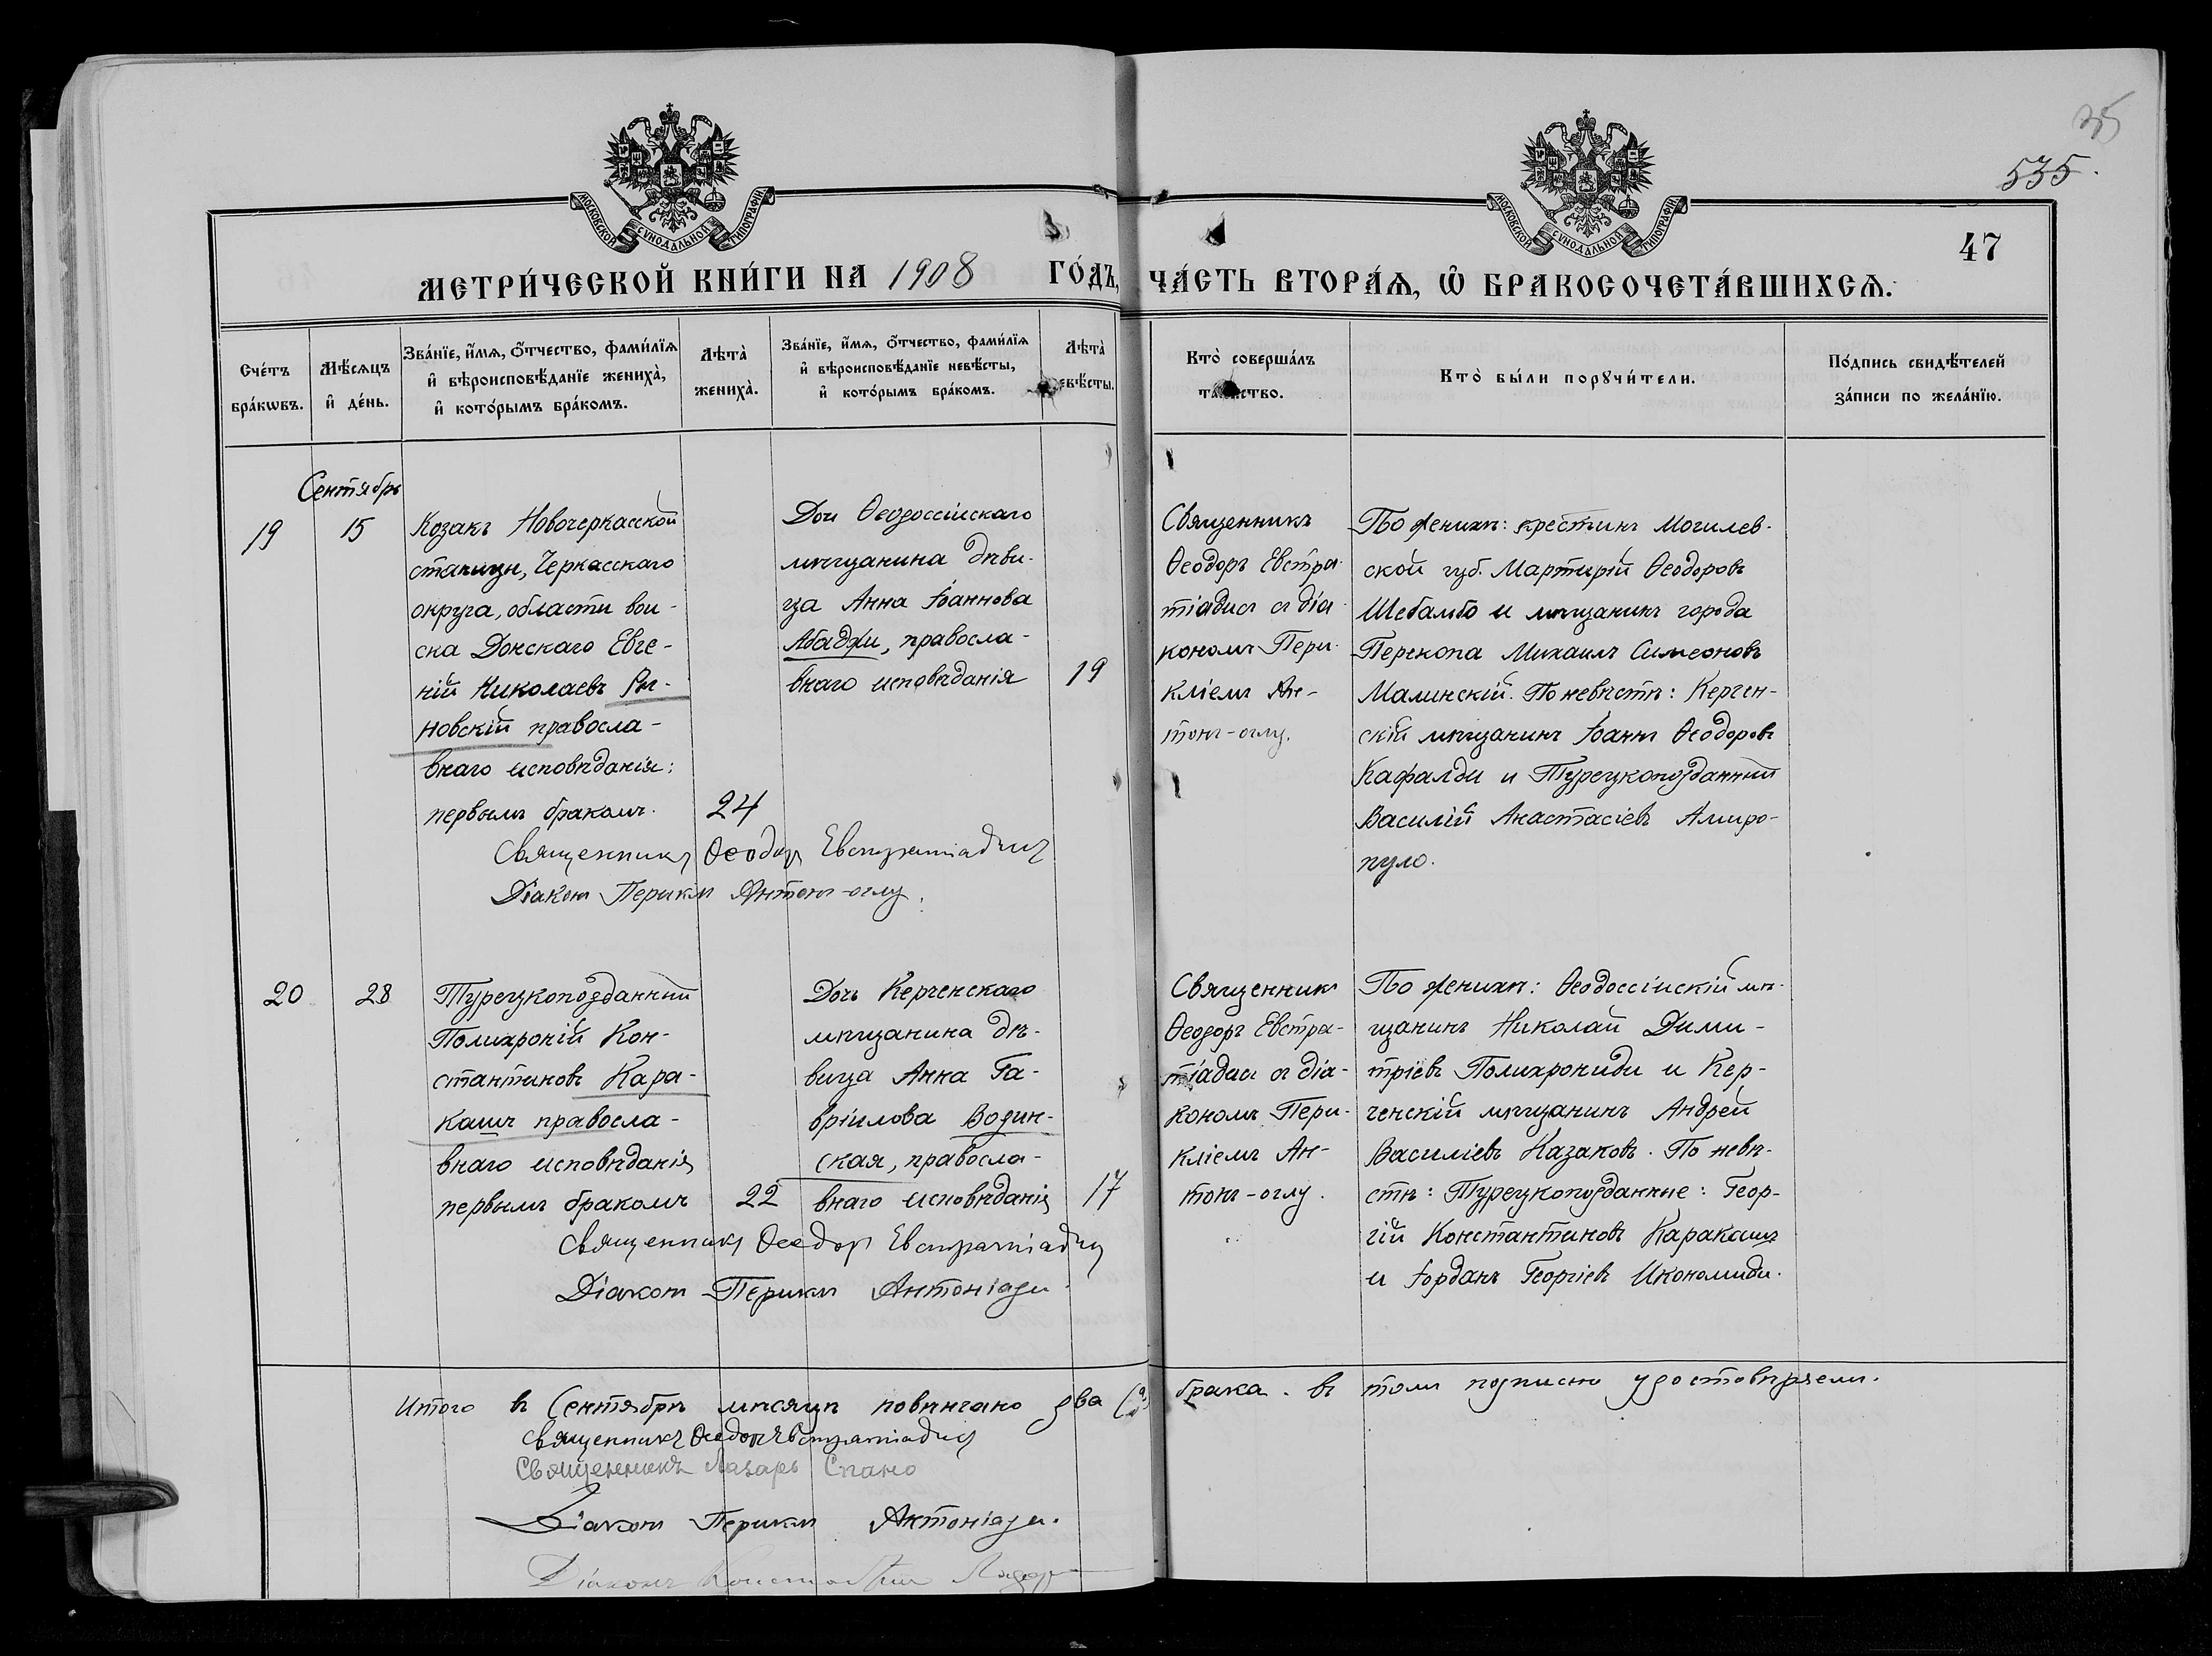 35
535.
МОСКОВСКОЙ СУНОДАЛЬНОЙ ТИПОГРАФІИ
МОСКОВСКОЙ СУНОДАЛЬНОЙ ТИПОГРАФІИ
47
МЕТРИ́ЧЕСКОЙ КНИ́ГИ НА 1908 ГО́ДЪ, ЧА́СТЬ ВТОРА́Ѧ, Ѽ БРАКОСОЧЕТА́ВШИХСѦ.
Сче́тъ
бра́кѡвъ.
Мѣ́сѧцъ
и҆ де́нь.
Зва́нїе, и҆́мѧ, ѻ҆́тчество, фами́лїѧ
и҆ вѣроисповѣ́данїе жениха̀,
и҆ кото́рымъ бра́комъ.
Лѣта̀
жениха̀.
Зва́нїе, и҆́мѧ, ѻ҆́тчество, фами́лїѧ
и҆ вѣроисповѣ́данїе невѣ́сты,
и҆ кото́рымъ бра́комъ.
Лѣта̀
евѣ́сты.
Кто̀ соверша́лъ
та́инство.
Кто̀ бы́ли порꙋчи́тели.
По́дпись свидѣ́телей
за́писи по жела́нїю.
Сентябрь
19
15
Козакъ Новочеркасской
станицы, Черкасскаго
округа, области вой-
ска Донскаго Евге-
ній Николаевъ Ры-
новскій правосла-
внаго исповѣданія:
первымъ бракомъ.
24
Дочь Ѳеодоссійскаго
мѣщанина дѣви-
ца Анна Іоаннова
Абаджи, правосла-
внаго исповѣданія
19
Священникъ
Ѳеодоръ Евстра-
тіадисъ съ діа-
кономъ Пери-
кліемъ Ан-
тонъ-оглу.
По женихѣ: крестинъ Могилев-
ской губ. Мартирій Ѳеодоровъ
Шебалво и мѣщанинъ города
Перекопа Михаилъ Симеоновъ
Малинскій. По невѣстѣ: Керчен-
скій мѣщанинъ Іоаннъ Ѳеодоровъ
Кафалди и Турецкоподданный
Василій Анастасіевъ Амиро-
пуло.
Священникъ Ѳеодоръ Евстратіадисъ
Діаконъ Периклъ Антонъ-оглу.
20
28
Турецкоподданный
Полихроній Кон-
стантиновъ Кара-
кашъ правосла-
внаго исповѣданія
первымъ бракомъ
22
Дочь Керченскаго
мѣщанина дѣ-
вица Анна Га-
вріилова Водин-
ская, правосла-
внаго исповѣданія
17
Священникъ
Ѳеодоръ Евстра-
тіадисъ съ діа-
кономъ Пери-
кліемъ Ан-
тонъ-оглу.
По женихѣ: Ѳеодоссійскій мѣ-
щанинъ Николай Дими-
тріевъ Полихрониди и Кер-
ченскій мѣщанинъ Андрей
Василіевъ Казаковъ. По невѣ-
стѣ: Турецкоподданные: Геор-
гій Константиновъ Каракашъ
и Іорданъ Георгіевъ Икономиди.
Священникъ Ѳеодоръ Евстратіадисъ
Діаконъ Периклъ Антоніади.
Итого въ Сентябрѣ мѣсяцѣ повѣнчано два (2) брака. въ томъ подписью удостовѣряемъ.
Священникъ Ѳеодоръ Евстратіадисъ
Священникъ Лазарь Спано
Діаконъ Периклъ Антоніади.
Діаконъ